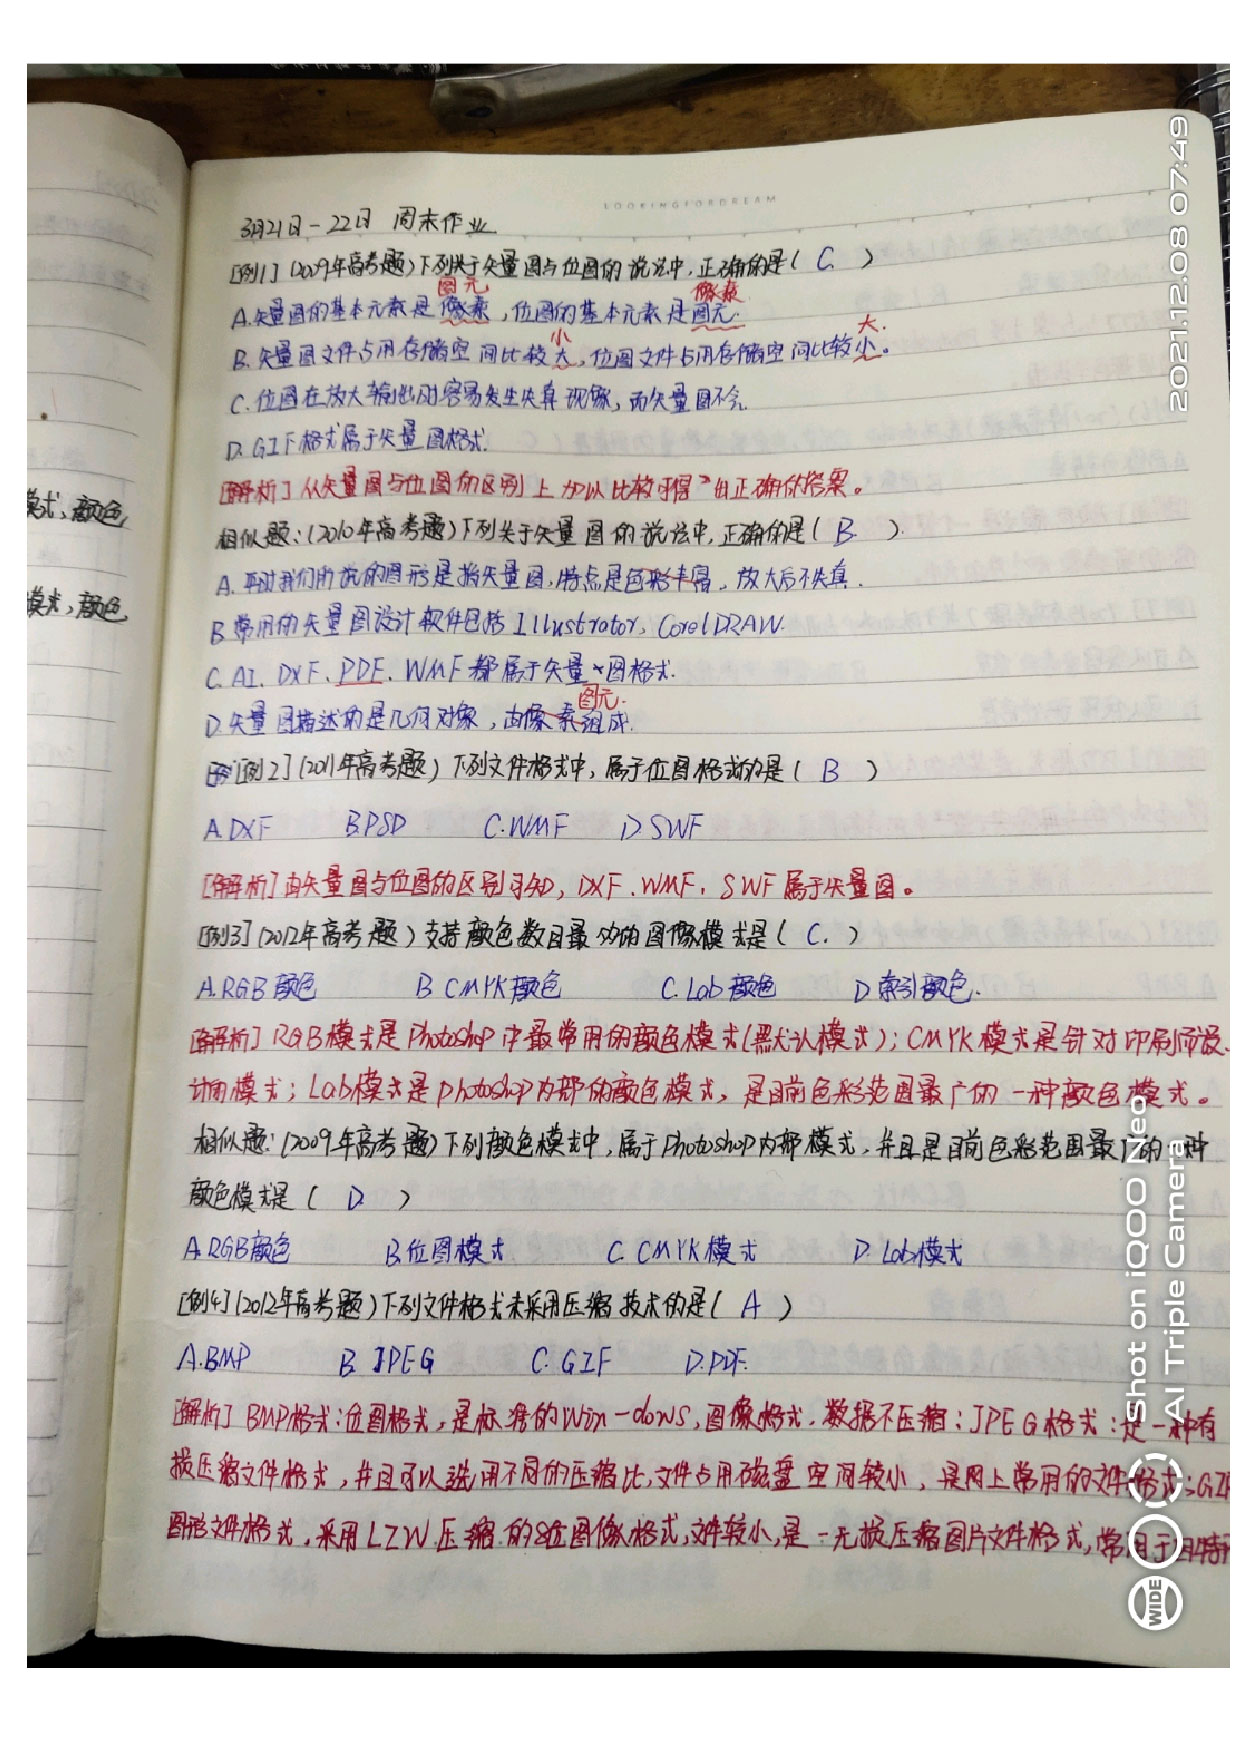 LOOKINGFORDREAM
3月21日-22日 周末作业
[例1](2009年高考题)下列关于矢量图与位图的说法中,正确的是( C )
图元 像素
A.矢量图的基本元素是像素,位图的基本元素是图元.
小 大.
B.矢量图文件占用存储空间比较大,位图文件占用存储空间比较小。
C.位图在放大输出时容易发生失真现像,而矢量图不会.
D.GIF格式属于矢量图格式.
[解析]从矢量图与位图的区别上加以比较可得出正确的答案。
相似题:(2010年高考题)下列关于矢量图的说法中,正确的是( B. ).
A.平时我们所说的图形是指矢量图,特点是色彩丰富,放大后不失真.
B.常用的矢量图设计软件包括Illustrator、CorelDRAW.
C.AI、DXF、PDF、WMF都属于矢量图格式.
图元.
D.矢量图描述的是几何对象,由像素组成.
[例2](2011年高考题)下列文件格式中,属于位图格式的是( B )
A.DXF B.PSD C.WMF D.SWF
[解析]由矢量图与位图的区别可知,DXF、WMF、SWF属于矢量图。
[例3](2012年高考题)支持颜色数目最多的图像模式是( C. )
A.RGB颜色 B.CMYK颜色 C.Lab颜色 D.索引颜色.
[解析]RGB模式是Photoshop中最常用的颜色模式(默认模式);CMYK模式是针对印刷而设
计的模式;Lab模式是photoshop内部的颜色模式,是目前色彩范围最广的一种颜色模式。
相似题:(2009年高考题)下列颜色模式中,属于Photoshop内部模式,并且是目前色彩范围最广的一种
颜色模式是( D. )
A.RGB颜色 B.位图模式 C.CMYK模式 D.Lab模式
[例4](2012年高考题)下列文件格式未采用压缩技术的是( A )
A.BMP B.JPEG C.GIF D.PDF.
[解析]BMP格式:位图格式,是标准的Win-dows,图像格式.数据不压缩;JPEG格式:是一种有
损压缩文件格式,并且可以选用不同的压缩比,文件占用磁盘空间较小,是网上常用的文件格式;GIF
图形文件格式,采用LZW压缩的8位图像格式,文件较小,是一无损压缩图片文件格式,常用于
模式,颜色
模式,颜色
2021.12.08 07:49
Shot on iQOO Neo
AI Triple Camera
WIDE